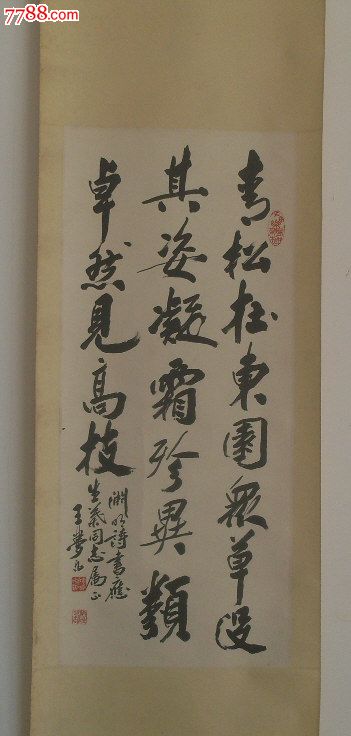 7788.com
青松在東園衆草没
其姿凝霜殄異類
卓然見高枝
淵明詩書應
同志属正
王